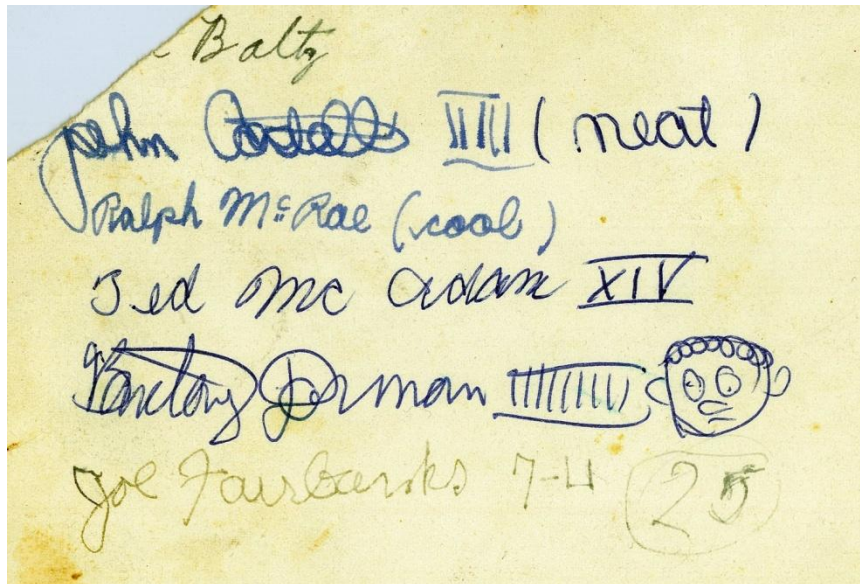 Baltz
John Costello IIIII (neat)
Ralph McRae (cool)
Ted Mc Adam XIV
Dorman IIIIIIIIII
Joe Fairbanks 7-4 25